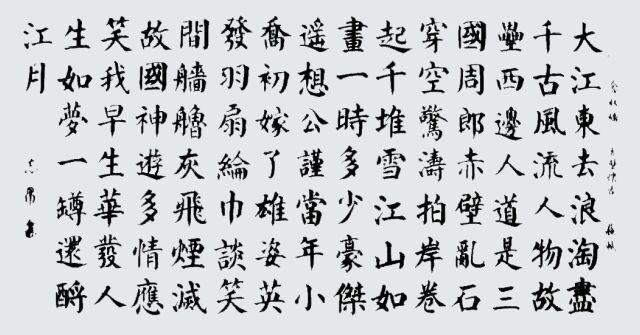 念奴嬌 赤壁懷古
大江東去浪淘盡
千古風流人物故
壘西邊人道是三
國周郎赤壁亂石
穿空驚濤拍岸卷
起千堆雪江山如
畫一時多少豪傑
遥想公謹當年小
喬初嫁了雄姿英
發羽扇綸巾談笑
間艢艣灰飛煙滅
故國神遊多情應
笑我早生華發人
生如夢一罇還酹
江月